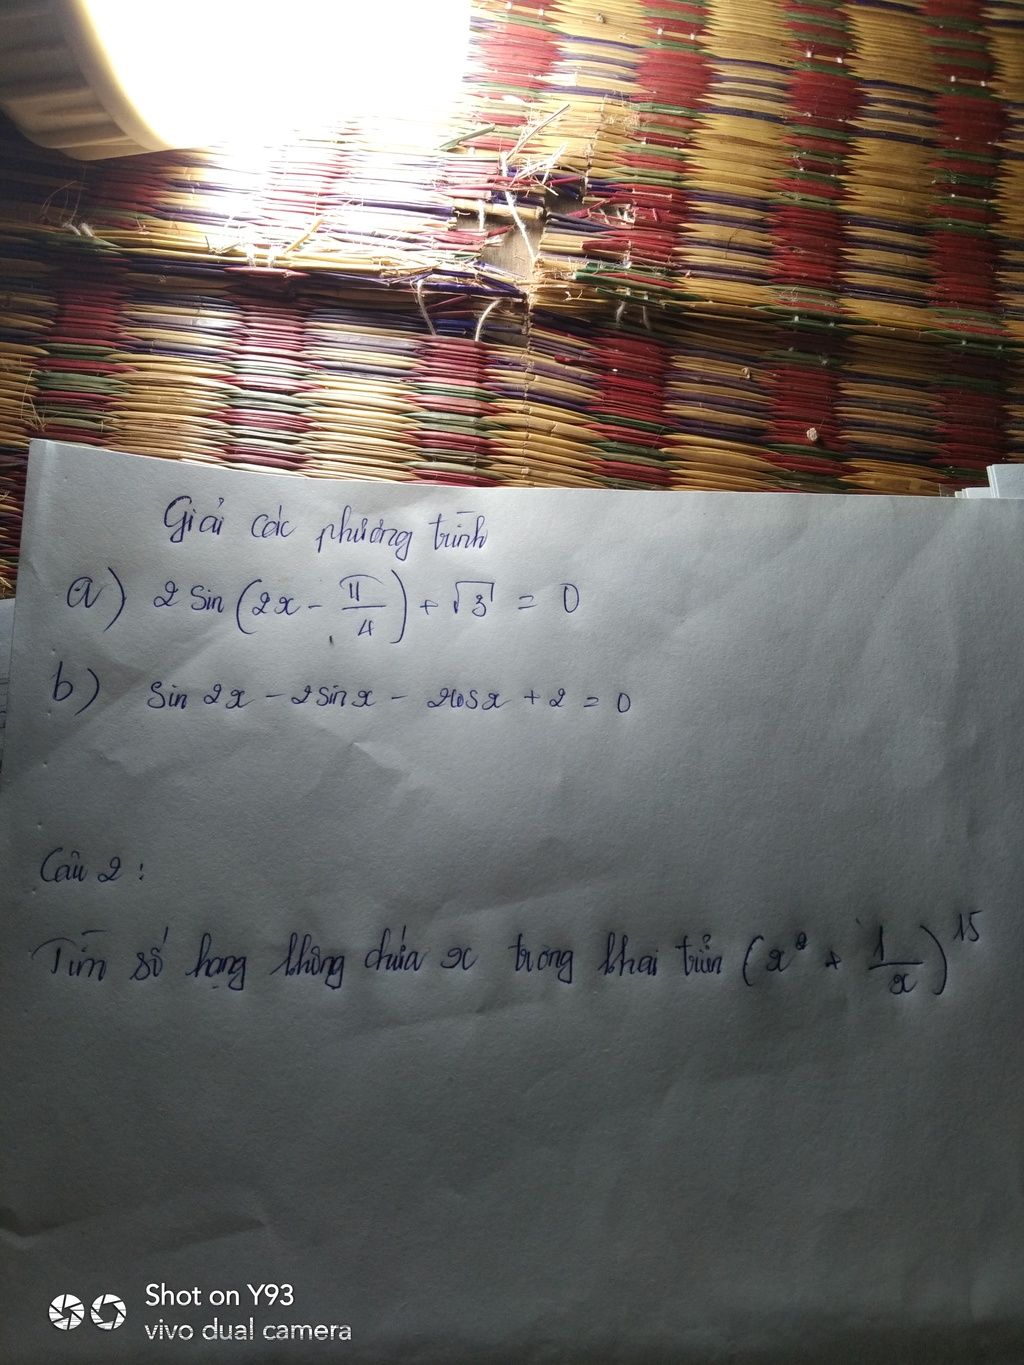 Giải các phương trình
a) 2 sin (2x - π/4) + √3 = 0
b) sin 2x - 2 sin x - 2cos x + 2 = 0
Câu 2 :
Tìm số hạng không chứa x trong khai triển (x² + 1/x)¹⁵
Shot on Y93
vivo dual camera